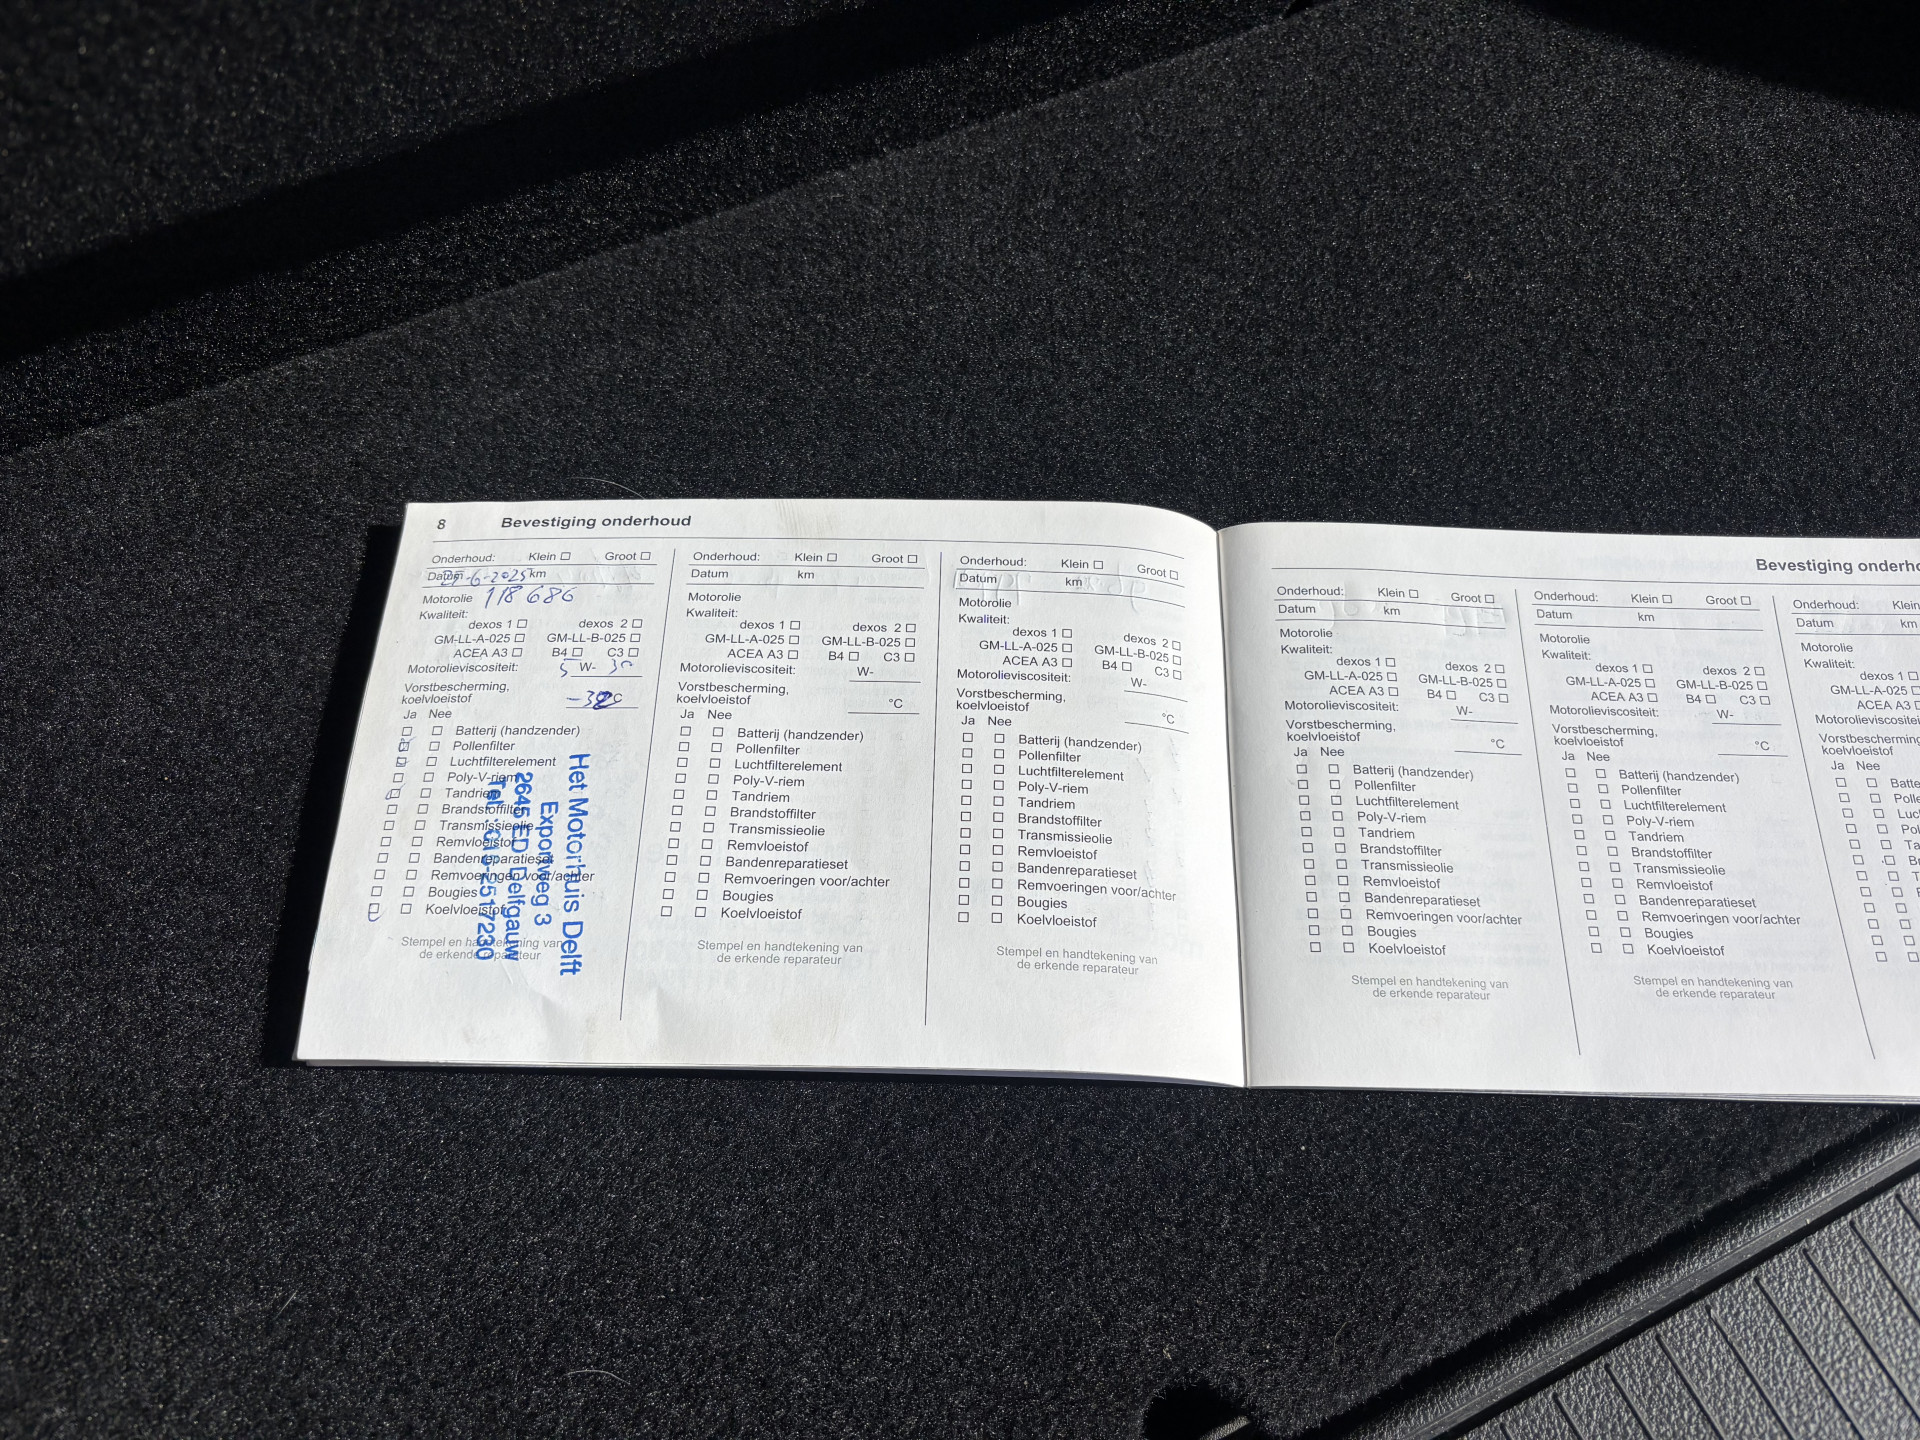 8 Bevestiging onderhoud
Onderhoud: Klein ☐ Groot ☐
Datum -6-2025 km
Motorolie 118 686
Kwaliteit:
dexos 1 ☐ dexos 2 ☐
GM-LL-A-025 ☐ GM-LL-B-025 ☐
ACEA A3 ☐ B4 ☐ C3 ☐
Motorolieviscositeit: 5 W- 30
Vorstbescherming,
koelvloeistof °C
Ja Nee
☐ ☐ Batterij (handzender)
☐ ☐ Pollenfilter
☐ ☐ Luchtfilterelement
☐ ☐ Poly-V-riem
☐ ☐ Tandriem
☐ ☐ Brandstoffilter
☐ ☐ Transmissieolie
☐ ☐ Remvloeistof
☐ ☐ Bandenreparatieset
☐ ☐ Remvoeringen voor/achter
☐ ☐ Bougies
☐ ☐ Koelvloeistof
Stempel en handtekening van
de erkende reparateur
Het Motorhuis Delft
Exportweg 3
2645 ED Delfgauw
Tel.: 015-2517230
Onderhoud: Klein ☐ Groot ☐
Datum km
Motorolie
Kwaliteit:
dexos 1 ☐ dexos 2 ☐
GM-LL-A-025 ☐ GM-LL-B-025 ☐
ACEA A3 ☐ B4 ☐ C3 ☐
Motorolieviscositeit: W-
Vorstbescherming,
koelvloeistof °C
Ja Nee
☐ ☐ Batterij (handzender)
☐ ☐ Pollenfilter
☐ ☐ Luchtfilterelement
☐ ☐ Poly-V-riem
☐ ☐ Tandriem
☐ ☐ Brandstoffilter
☐ ☐ Transmissieolie
☐ ☐ Remvloeistof
☐ ☐ Bandenreparatieset
☐ ☐ Remvoeringen voor/achter
☐ ☐ Bougies
☐ ☐ Koelvloeistof
Stempel en handtekening van
de erkende reparateur
Onderhoud: Klein ☐ Groot ☐
Datum km
Motorolie
Kwaliteit:
dexos 1 ☐ dexos 2 ☐
GM-LL-A-025 ☐ GM-LL-B-025 ☐
ACEA A3 ☐ B4 ☐ C3 ☐
Motorolieviscositeit: W-
Vorstbescherming,
koelvloeistof °C
Ja Nee
☐ ☐ Batterij (handzender)
☐ ☐ Pollenfilter
☐ ☐ Luchtfilterelement
☐ ☐ Poly-V-riem
☐ ☐ Tandriem
☐ ☐ Brandstoffilter
☐ ☐ Transmissieolie
☐ ☐ Remvloeistof
☐ ☐ Bandenreparatieset
☐ ☐ Remvoeringen voor/achter
☐ ☐ Bougies
☐ ☐ Koelvloeistof
Stempel en handtekening van
de erkende reparateur
Bevestiging onderho
Onderhoud: Klein ☐ Groot ☐
Datum km
Motorolie
Kwaliteit:
dexos 1 ☐ dexos 2 ☐
GM-LL-A-025 ☐ GM-LL-B-025 ☐
ACEA A3 ☐ B4 ☐ C3 ☐
Motorolieviscositeit: W-
Vorstbescherming,
koelvloeistof °C
Ja Nee
☐ ☐ Batterij (handzender)
☐ ☐ Pollenfilter
☐ ☐ Luchtfilterelement
☐ ☐ Poly-V-riem
☐ ☐ Tandriem
☐ ☐ Brandstoffilter
☐ ☐ Transmissieolie
☐ ☐ Remvloeistof
☐ ☐ Bandenreparatieset
☐ ☐ Remvoeringen voor/achter
☐ ☐ Bougies
☐ ☐ Koelvloeistof
Stempel en handtekening van
de erkende reparateur
Onderhoud: Klein ☐ Groot ☐
Datum km
Motorolie
Kwaliteit:
dexos 1 ☐ dexos 2 ☐
GM-LL-A-025 ☐ GM-LL-B-025 ☐
ACEA A3 ☐ B4 ☐ C3 ☐
Motorolieviscositeit: W-
Vorstbescherming,
koelvloeistof °C
Ja Nee
☐ ☐ Batterij (handzender)
☐ ☐ Pollenfilter
☐ ☐ Luchtfilterelement
☐ ☐ Poly-V-riem
☐ ☐ Tandriem
☐ ☐ Brandstoffilter
☐ ☐ Transmissieolie
☐ ☐ Remvloeistof
☐ ☐ Bandenreparatieset
☐ ☐ Remvoeringen voor/achter
☐ ☐ Bougies
☐ ☐ Koelvloeistof
Stempel en handtekening van
de erkende reparateur
Onderhoud: Klein
Datum km
Motorolie
Kwaliteit:
dexos 1 ☐
GM-LL-A-025 ☐
ACEA A3 ☐
Motorolieviscositei
Vorstbescherming,
koelvloeistof
Ja Nee
☐ ☐ Batte
☐ ☐ Polle
☐ ☐ Luc
☐ ☐ Po
☐ ☐ Ta
☐ ☐ B
☐ ☐ T